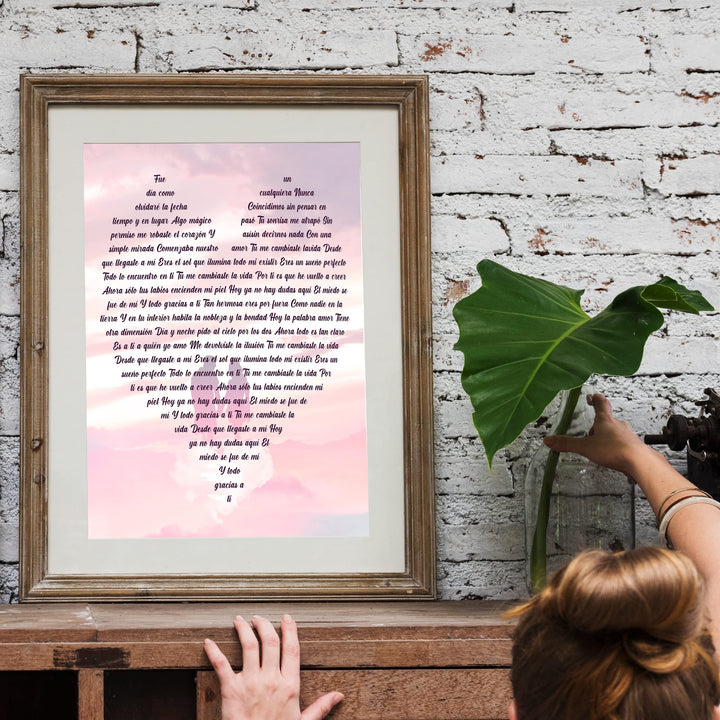 Fue un
día como cualquiera Nunca
olvidaré la fecha Coincidimos sin pensar en
tiempo y en lugar Algo mágico pasó Tu sonrisa me atrapó Sin
permiso me robaste el corazón Y asiún decirnos nada Con una
simple mirada Comenzaba nuestro amor Tu me cambiaste lavida Desde
que llegaste a mi Eres el sol que ilumina todo mi existir Eres un sueño perfecto
Todo lo encuentro en ti Tu me cambiaste la vida Por ti es que he vuello a creer
Ahora sólo tus labios encienden mi piel Hoy ya no hay dudas aquí El miedo se
fue de mi Y todo gracias a ti Tan hermosa eres por fuera Como nadie en la
tierra Y en tu interior habita la nobleza y la bondad Hoy la palabra amor Tiene
otra dimensión Dia y noche pido al cielo por los dos Ahora todo es tan claro
Es a ti a quién yo amo Me devolviste la ilusión Tu me cambiaste la vida
Desde que llegaste a mi Eres el sol que ilumina todo mi existir Eres un
sueño perfecto Todo lo encuentro en ti Tu me cambiaste la vida Por
ti es que he vuello a creer Ahora sólo tus labios encienden mi
piel Hoy ya no hay dudas aquí El miedo se fue de
mi Y todo gracias a ti Tu me cambiaste la
vida Desde que llegaste a mi Hoy
ya no hay dudas aquí El
miedo se fue de mi
Y todo
gracias a
ti